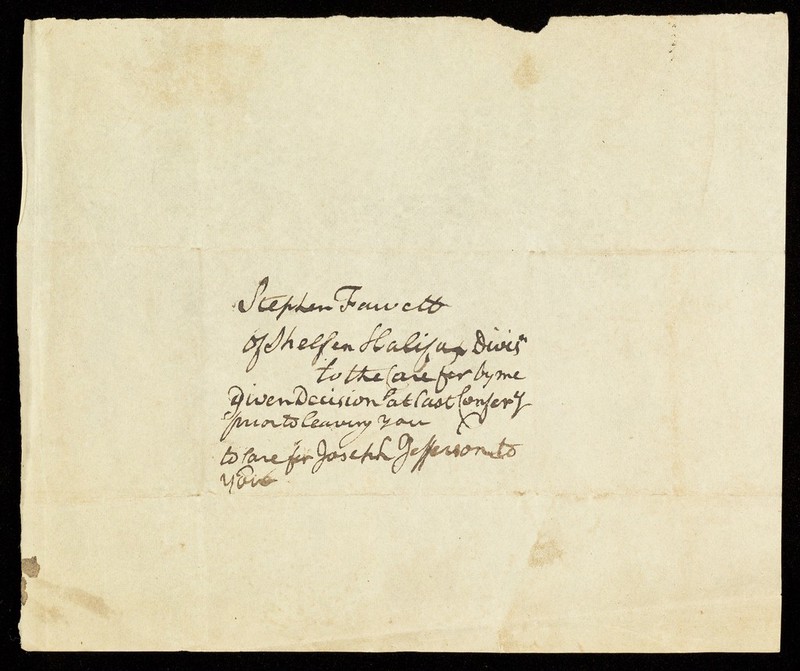 Stephen Fawcett
Of Shelfen Halifax Divisn
to the Care for by me
Given Decision at Last
prior to leaving you
to Care for Joseph Jefferson to